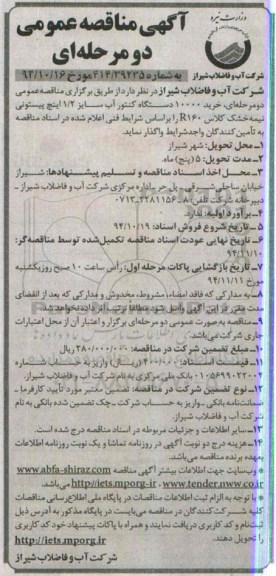 وزارت نیرو
آگهی مناقصه عمومی
دو مرحله‌ای
شرکت آب و فاضلاب شیراز
به شماره ۴۱۴/۲۹۲۳۵ مورخ ۹۴/۱۰/۱۶
شرکت آب و فاضلاب شیراز در نظر دارد از طریق برگزاری مناقصه عمومی
دو مرحله‌ای، خرید ۱۰۰۰۰ دستگاه کنتور آب سایز ۱/۲ اینچ پیستونی
نیمه خشک کلاس R۱۶۰ را براساس شرایط فنی اعلام شده در اسناد مناقصه
به تأمین کنندگان واجد شرایط واگذار نماید.
۱– محل تحویل: شهر شیراز
۲– مدت تحویل: ۵ (پنج) ماه.
۳– محل اخذ اسناد مناقصه و تسلیم پیشنهادها: شیراز
خیابان ساحلی شرقی – پل حر – اداره مرکزی شرکت آب و فاضلاب شیراز –
دبیرخانه شرکت تلفن:
۴– برآورد اولیه: ندارد.
۵– تاریخ شروع فروش اسناد: ۹۴/۱۰/۱۹
۶– تاریخ نهایی عودت اسناد مناقصه تکمیل شده توسط مناقصه‌گر:
۹۴/۱۱/۱۰
۷– تاریخ بازگشایی پاکات مرحله اول: رأس ساعت ۱۰ صبح روز یکشنبه
مورخ ۹۴/۱۱/۱۱
۸– به مدارکی که فاقد امضاء، مشروط، مخدوش و مدارکی که بعد از انقضای
مدت مقرر در این آگهی واصل شود مطلقاً ترتیب اثر داده نخواهد شد.
۹– مناقصه به صورت عمومی دو مرحله‌ای برگزار و اعتبار آن از محل اعتبارات
جاری شرکت می‌باشد.
۱۰– مبلغ تضمین شرکت در مناقصه: ۲۸۰/۰۰۰/۰۰۰ ریال
۱۱– قیمت اسناد: ریال واریز به حساب شماره
بانک ملی مرکزی به نام شرکت آب و فاضلاب شیراز.
۱۲– نوع تضمین شرکت در مناقصه: تضمین معتبر مورد تأیید کارفرما –
ضمانتنامه بانکی – واریز به حساب شرکت – چک تضمین شده بانکی به نام
شرکت آب و فاضلاب شیراز.
۱۳– سایر اطلاعات و جزئیات مربوطه در اسناد مناقصه درج شده است.
۱۴– هزینه درج دو نوبت آگهی در روزنامه تماشا و یک نوبت روزنامه اطلاعات
بعهده برنده مناقصه می‌باشد.
* وب سایت جهت اطلاعات بیشتر آگهی مناقصه www.abfa-shiraz.com
www.tender.nww.co.ir و http://iets.mporg.ir می‌باشد.
* با توجه به الزام ثبت اطلاعات مناقصات در پایگاه ملی اطلاع‌رسانی مناقصات
کلیه شرکت کنندگان در مناقصه می‌بایست در پایگاه مذکور به آدرس ذیل
ثبت نام و کد کاربری دریافت نمایند و همراه با پاکات پیشنهاد خود کد کاربری
را تحویل دهند.
http://iets.mporg.ir
شرکت آب و فاضلاب شیراز